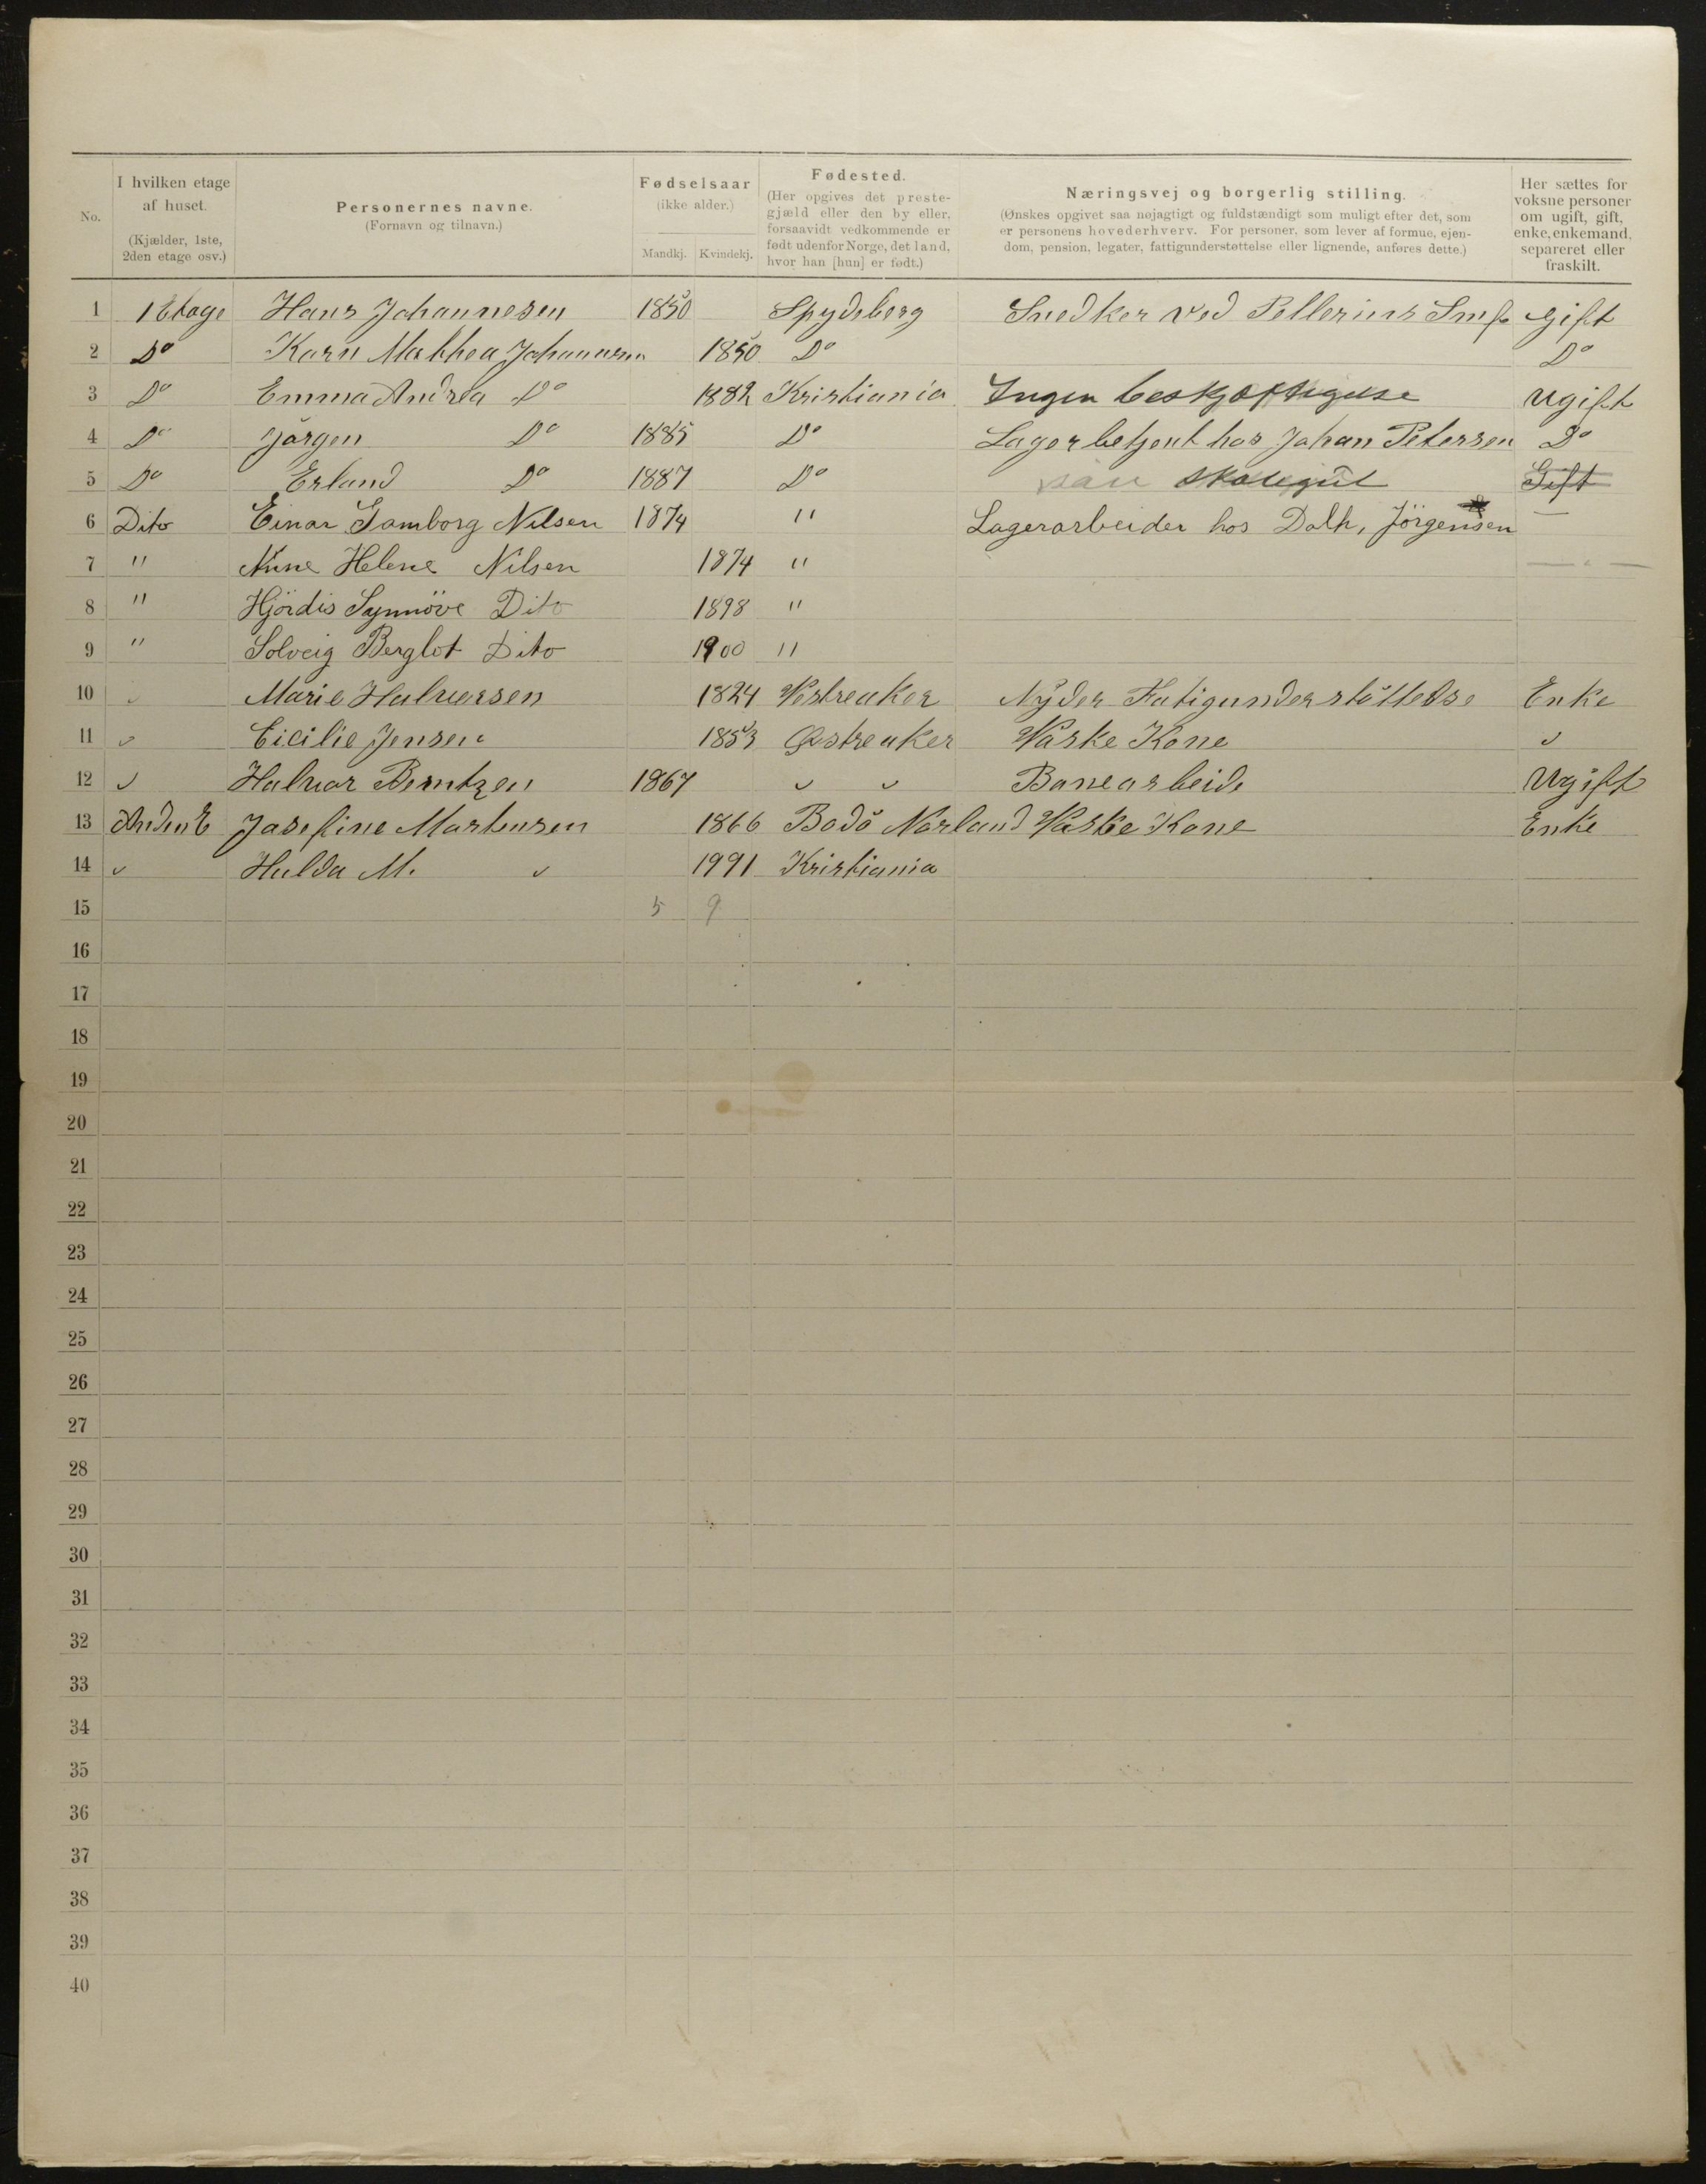 No. I hvilken etage af huset. (Kjælder, 1ste, 2den etage osv.) Personernes navne. (Fornavn og tilnavn.) Fødselsaar (ikke alder.) Mandkj. Kvindekj. Fødested. (Her opgives det prestegjæld eller den by eller, forsaavidt vedkommende er født udenfor Norge, det land, hvor han [hun] er født.) Næringsvej og borgerlig stilling. (Ønskes opgivet saa nøjagtigt og fuldstændigt som muligt efter det, som er personens hovederhverv. For personer, som lever af formue, ejendom, pension, legater, fattigunderstøttelse eller lignende, anføres dette.) Her sættes for voksne personer om ugift, gift, enke, enkemand, separeret eller fraskilt.
1 1 Etage Hans Johannesen 1850 Spydeberg Snedker ved Pellerins Smf gift
2 Do Karn Mathea Johannesen 1850 Do Do
3 Do Emma Andrea Do 1882 Kristiania Ingen beskjæftigelse Ugift
4 Do Jørgen Do 1885 Do Lagerbetjent hos Johan Petersen Do
5 Do Erland Do 1887 Do skolegut Gift
6 Dito Einar Gamborg Nilsen 1874 " Lagerarbeider hos Dalh, Jörgensen —
7 " Anne Helene Nilsen 1874 " — " —
8 " Hjördis Synnöve Dito 1898 "
9 " Solveig Berglot Dito 1900 "
10 " Marie Halvorsen 1824 Vestreaker Nyder Fatigunderstøttelse Enke
11 " Cicilie Jensen 1853 Østreaker Vaske Kone "
12 " Halvor Berntzen 1867 " " Banearbeide Ugift
13 Anden E Josefine Martensen 1866 Bodö Norland Vaske Kone Enke
14 " Hulda M. " 1991 Kristiania
15 5 9
16
17
18
19
20
21
22
23
24
25
26
27
28
29
30
31
32
33
34
35
36
37
38
39
40